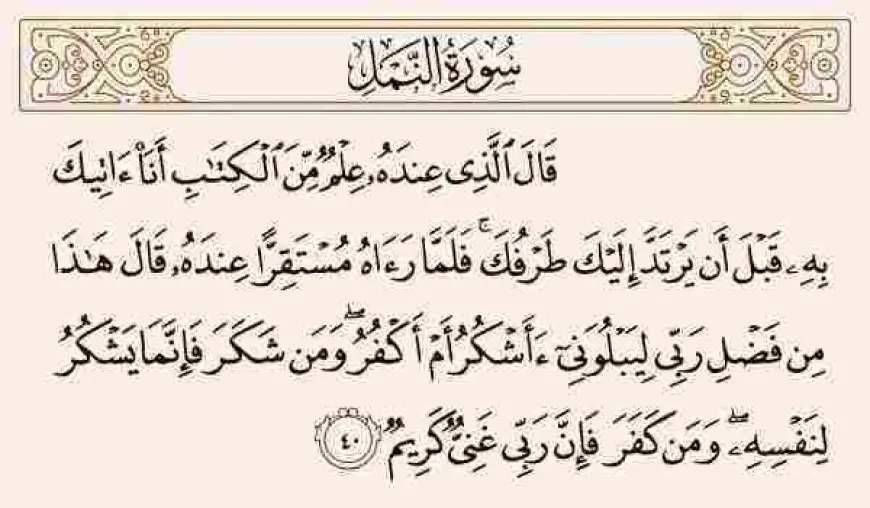 سُورَةُ النَّمَلِ
قَالَ ٱلَّذِى عِندَهُۥ عِلْمٌ مِّنَ ٱلْكِتَٰبِ أَنَا۠ ءَاتِيكَ
بِهِۦ قَبْلَ أَن يَرْتَدَّ إِلَيْكَ طَرْفُكَ ۚ فَلَمَّا رَءَاهُ مُسْتَقِرًّا عِندَهُۥ قَالَ هَٰذَا
مِن فَضْلِ رَبِّى لِيَبْلُوَنِىٓ ءَأَشْكُرُ أَمْ أَكْفُرُ ۖ وَمَن شَكَرَ فَإِنَّمَا يَشْكُرُ
لِنَفْسِهِۦ ۖ وَمَن كَفَرَ فَإِنَّ رَبِّى غَنِىٌّ كَرِيمٌ ٤٠